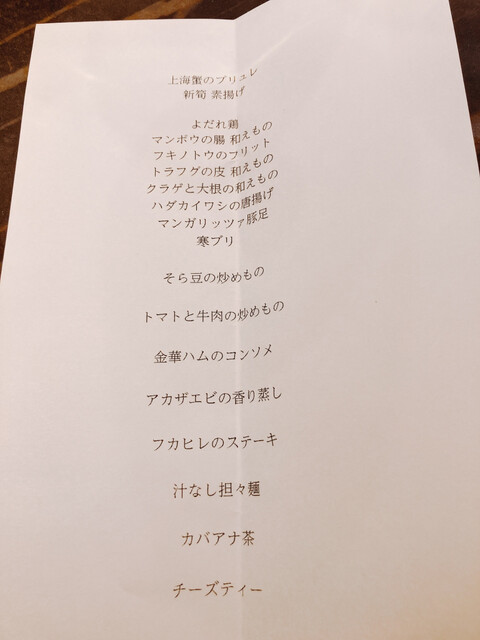 上海蟹のブリュレ
新筍 素揚げ
よだれ鶏
マンボウの腸 和えもの
フキノトウのフリット
トラフグの皮 和えもの
クラゲと大根の和えもの
ハダカイワシの唐揚げ
マンガリッツァ豚足
寒ブリ
そら豆の炒めもの
トマトと牛肉の炒めもの
金華ハムのコンソメ
アカザエビの香り蒸し
フカヒレのステーキ
汁なし担々麺
カバアナ茶
チーズティー